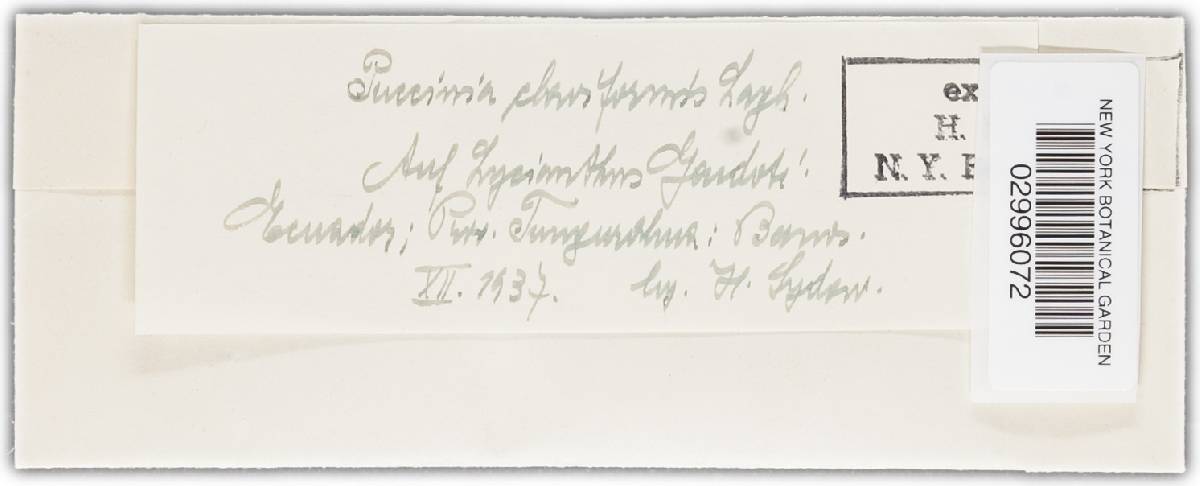 Puccinia claviformis Lagh.
Auf Lycianthus Gaudoti!
Ecuador; Prov. Tungurahua: Banos.
XII. 1937. leg. H. Sydow.
ex
H.
N. Y.
NEW YORK BOTANICAL GARDEN
02996072